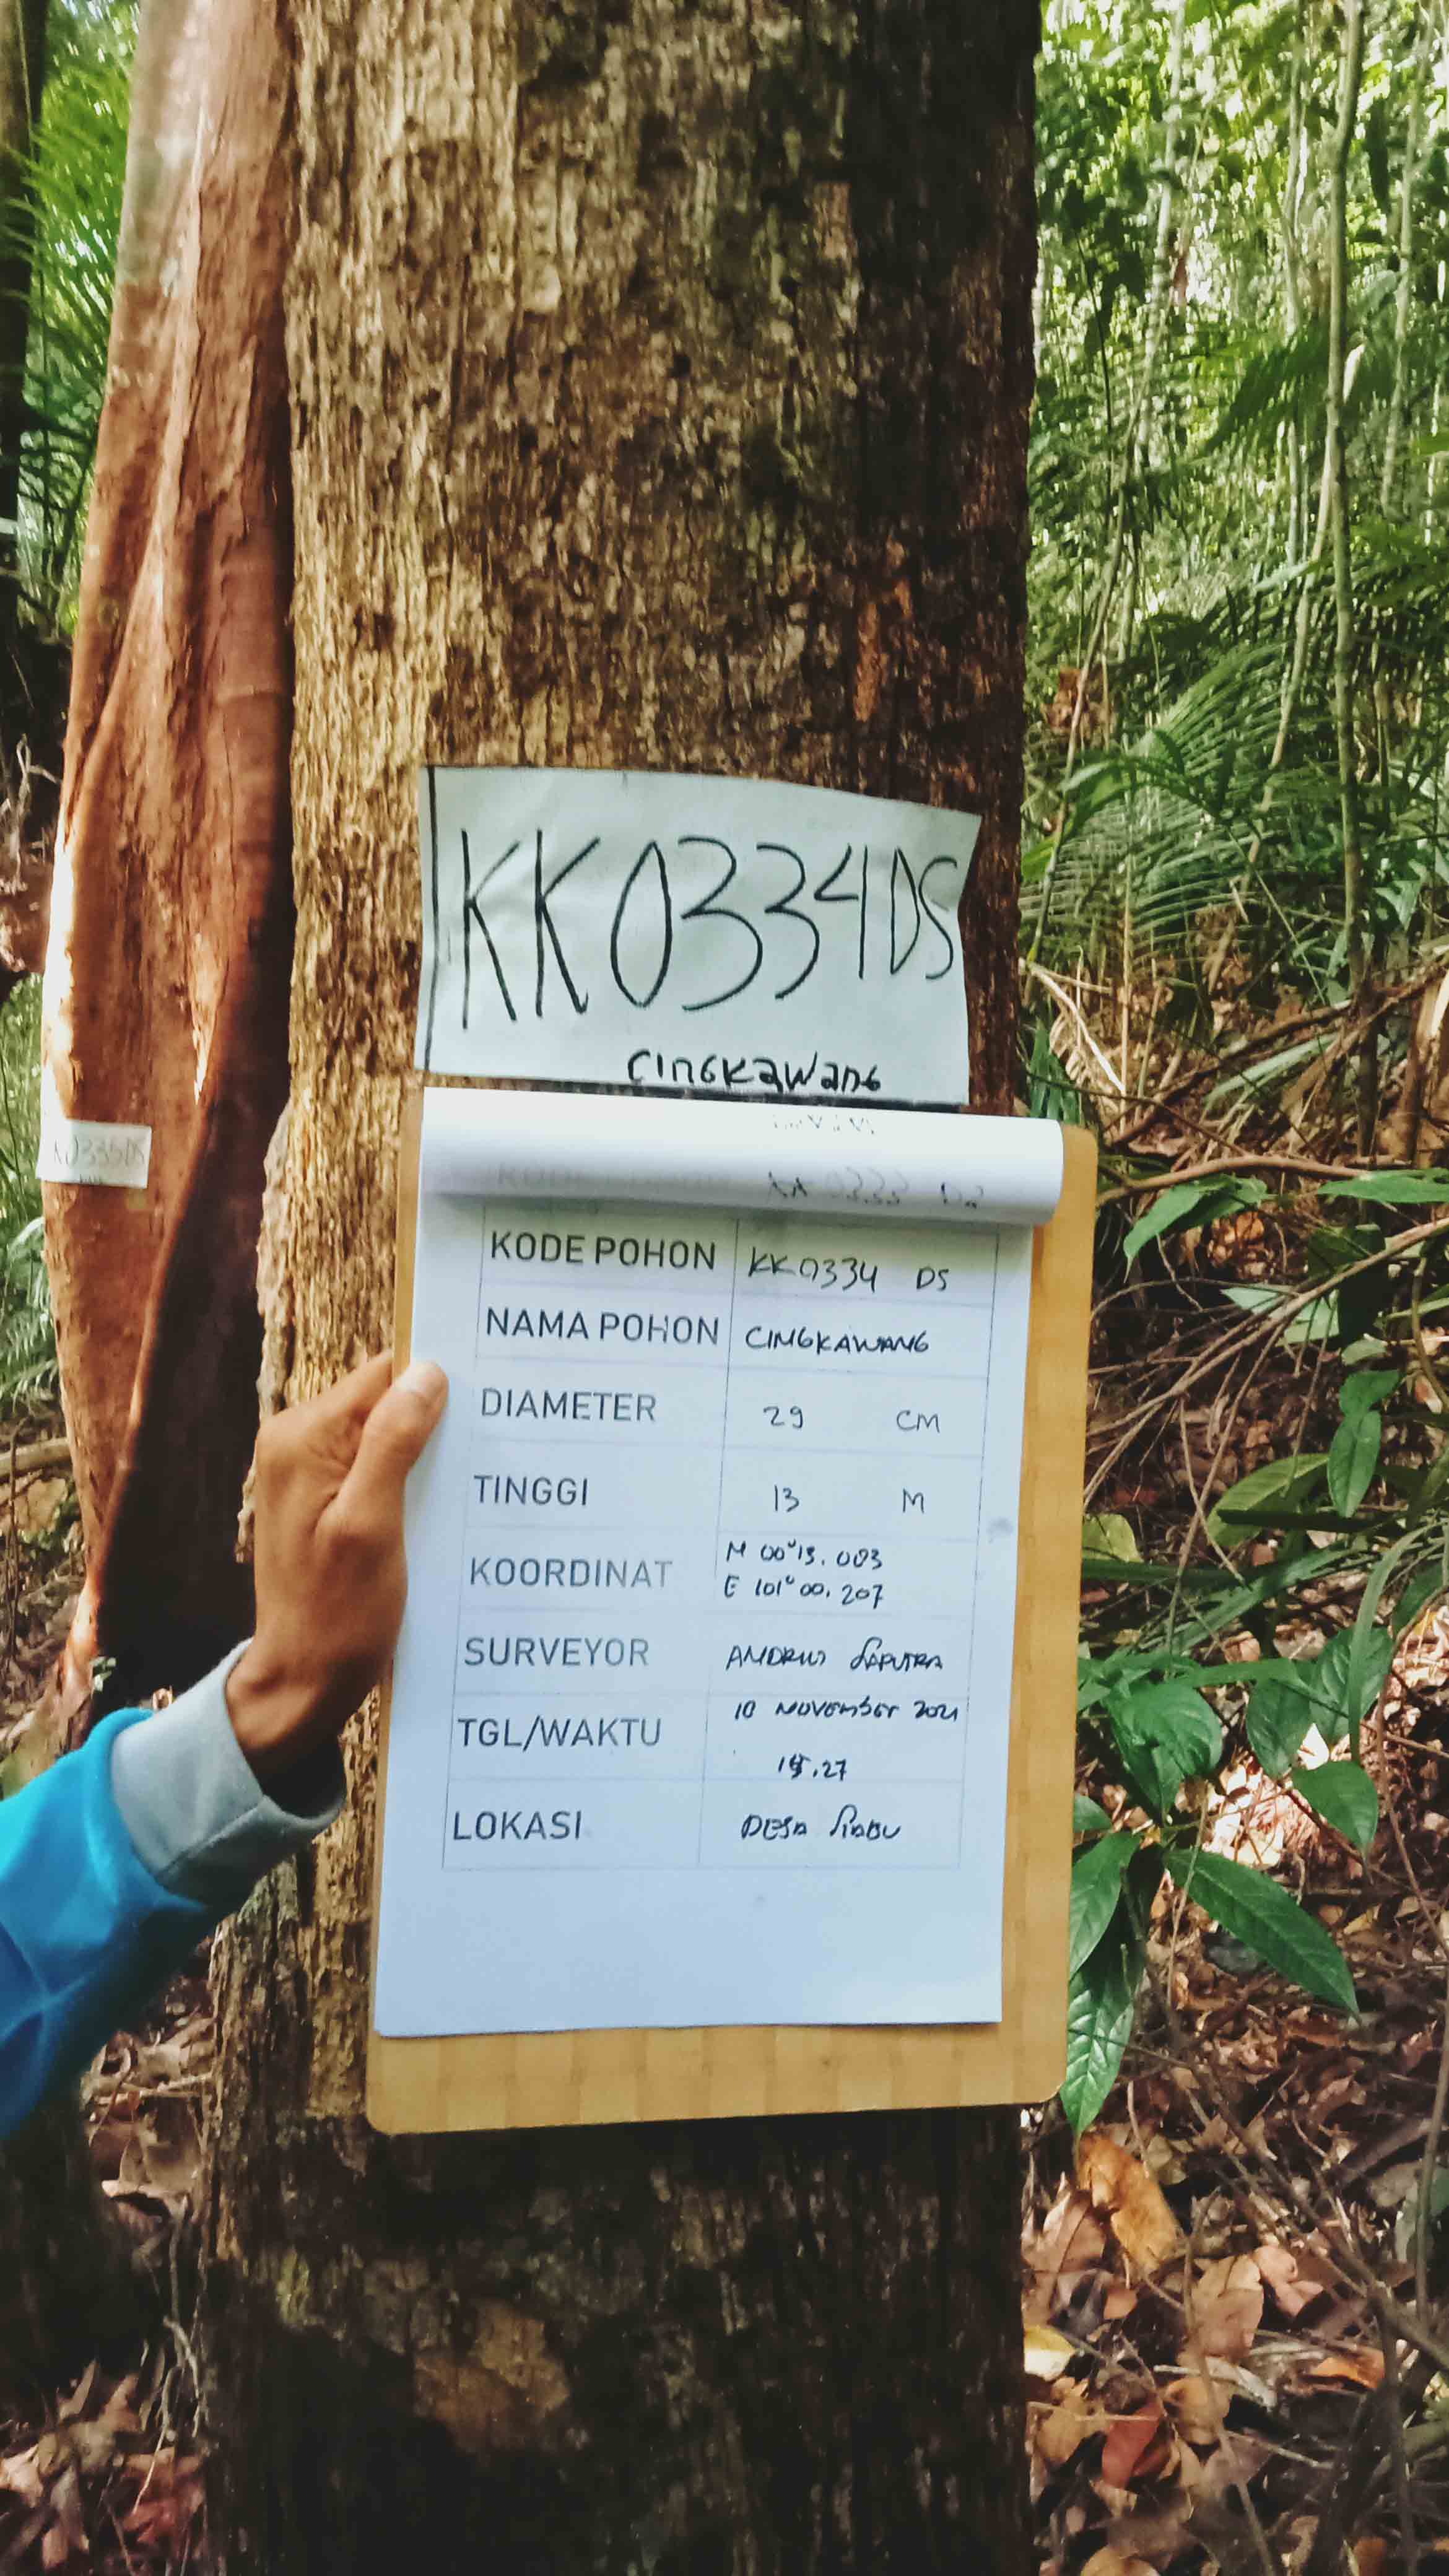 KK0334DS
CINGKAWANG
KODE POHON KK0334 DS
NAMA POHON CINGKAWANG
DIAMETER 29 CM
TINGGI 13 M
KOORDINAT N 00°13.083
E 101°00.207
SURVEYOR ANDRUS SAPUTRA
TGL/WAKTU 10 NOVEMBER 2021
15.27
LOKASI DESA SIABU
K0335DS